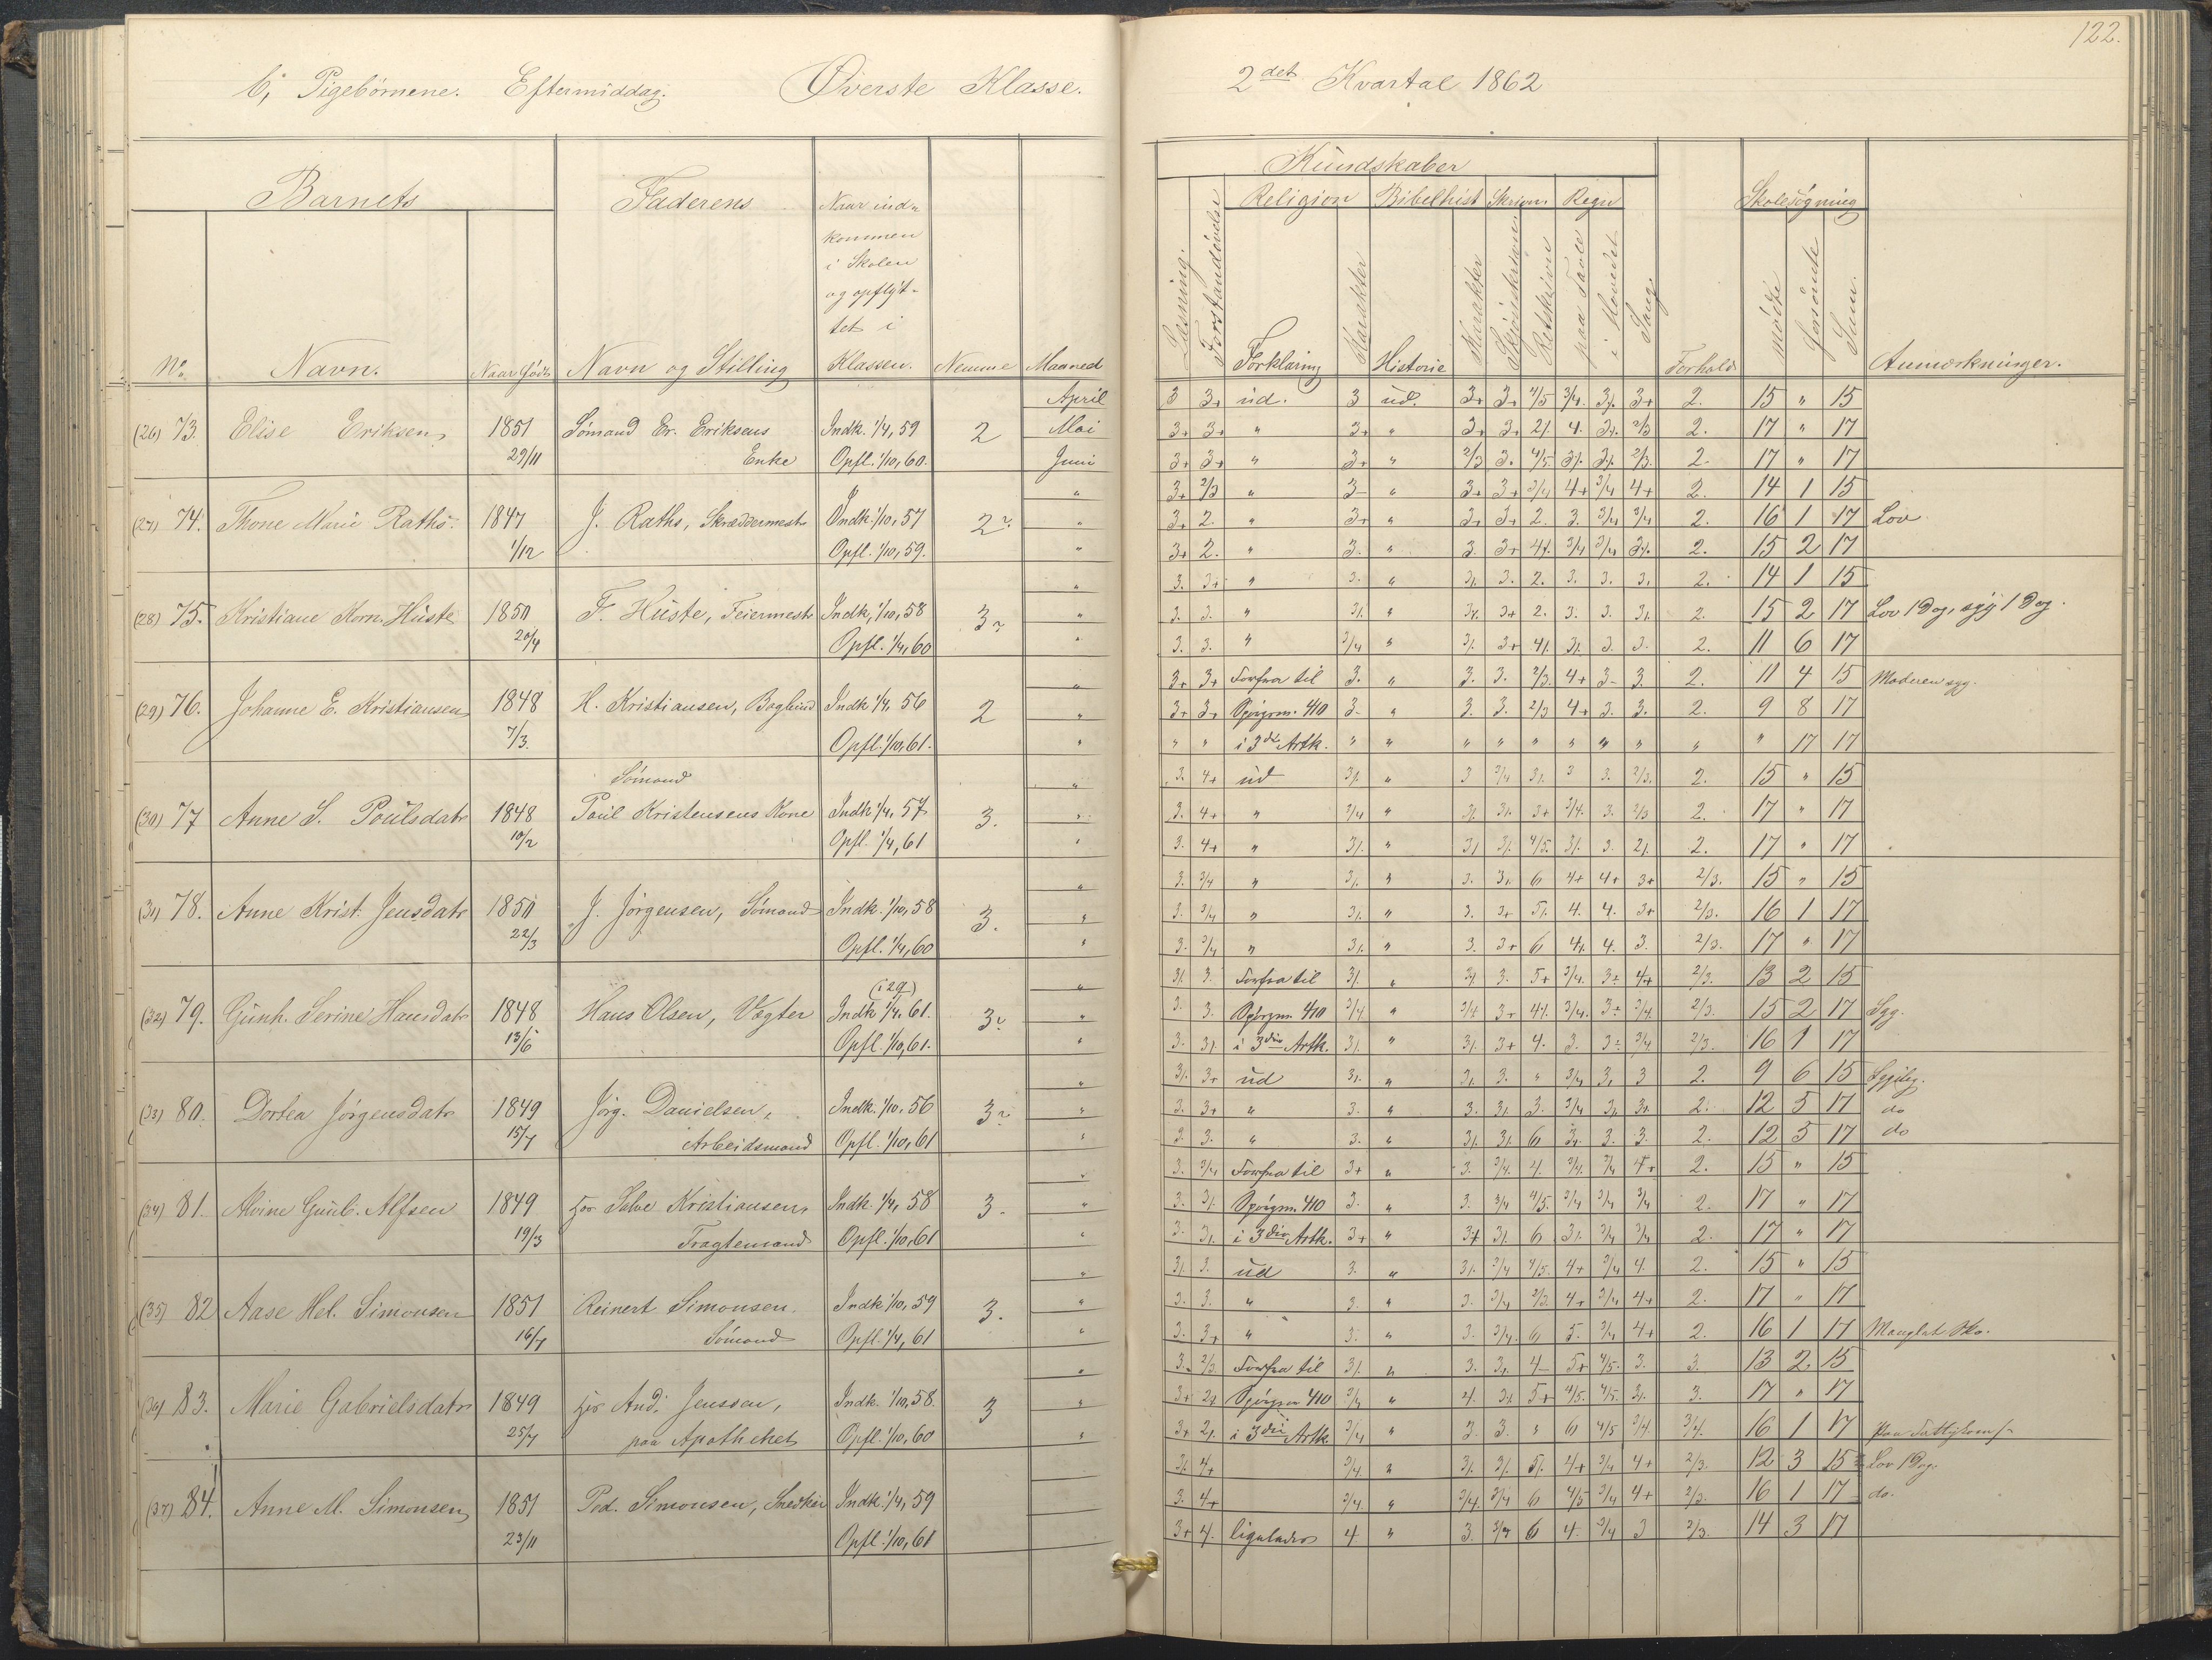 122.
b, Pigebørnene. Eftermiddag. Øverste Klasse.
2det Kvartal 1862
Barnets Faderens Naar ind-
kommen
i Skolen
og opflyt-
tet i
No. Navn. Naar født Navn og Stilling Klassen. Nemme Maaned
Kundskaber
Religion Bibelhist Skrivn. Regn Skolesøgning
Læsning. Forstandsøvelse Forklaring Karakter Historie Karakter Skjønskrivn Retskrivn paa Tavle i Hovedet Sang. Forhold mødte forsømte Sum. Anmærkninger.
April
(26) 73. Elise Eriksen, 1851 Sømand Er. Eriksens Indk. 1/4, 59 2 Mai
29/11 Enke Opfl. 1/10, 60. Juni
(27) 74. Thone Marie Raths. 1847 J. Raths, Skræddermest. Indk. 1/10, 57 2
1/12 Opfl. 1/10, 59.
(28) 75. Kristiane Korn. Hüste 1850 F. Hüste, Feiermest. Indk. 1/10, 58 3
20/4 Opfl. 1/4, 60
(29) 76. Johanne E. Kristiansen 1848 H. Kristiansen, Bogbind Indk 1/4, 56 2
7/3. Opfl. 1/10, 61.
Sømand
(30) 77 Anne S. Poulsdatr 1848 Poul Kristensens Kone Indk 1/4, 57 3.
10/2 Opfl. 1/4, 61
(31) 78. Anne Krist. Jensdatr 1850 J. Jørgensen, Sømand Indk. 1/10, 58 3.
22/3 Opfl. 1/4, 60
(32) 79. Gunh. Serine Hansdatr 1848 Hans Olsen, Vægter Indk 1/4, 61. 3
13/6 Opfl. 1/10, 61.
(33) 80. Dortea Jørgensdatr 1849 Jørg. Danielsen, Indk. 1/10, 56 3
15/7 Arbeidsmand Opfl. 1/10, 61
(34) 81. Alvine Gunb. Alfsen 1849 hos Salve Kristiansen, Indk 1/4, 58 3.
19/3 Fragtemand Opfl. 1/10, 61
(35) 82 Aase Hel. Simonsen 1851 Reinert Simonsen. Indk 1/10, 59 3.
16/7 Sømand Opfl. 1/4, 61
(36) 83. Marie Gabrielsdatr 1849 hos And. Jenssen, Indk. 1/10, 58. 3
25/7 paa Apotheket Opfl. 1/10, 60
(37) 84. Anne M. Simonsen, 1851 Ped. Simonsen, Snedker Indk. 1/4, 59
23/11 Opfl. 1/10, 61
3 3+ ud. 3 ud. 3+ 3+ 4/5 3/4. 3+ 2. 15 " 15
3+ 3+ " 3+ " 3+ 3+ 4. 2/3 2. 17 " 17
3+ 3+ " 3+ " 2/3 3. 4/5 2/3. 2. 17 " 17
3+ 2/3 " 3- " 3+ 3+ 3/4 4+ 3/4 4+ 2. 14 1 15
3+ 2. " 3+ " 3+ 3+ 2. 3. 3/4 3/4 2. 16 1 17 Lov
3+ 2. " 3. " 3. 3+ 3/4 3/4 2. 15 2 17
3. 3+ " 3. " 3. 2. 3. 3. 2. 14 1 15
3. 3. " " 3+ 2. 3. 3. 2. 15 2 17 Lov 1 Dag, syg 1 Dag.
3. 3. " 3/4 " 3+ 3. 3. 2. 11 6 17
3+ 3+ Forfra til 3. " 3. 3. 2/3. 4+ 3- 3. 2. 11 4 15 Moderen syg.
3+ 3+ Spørgsm. 410 3- " 3. 3. 2/3 4+ 3. 3. 2. 9 8 17
" " i 3die Artk. " " " " " " " " " " 17 17
3. 4+ ud " 3 3/4 3 3. 2/3. 2. 15 " 15
3. 4+ " 3/4 " 3+ 3/4. 3. 2/3 2. 17 " 17
3. 4+ " " 4/5. 3. 2. 17 " 17
3. 3/4 " " 3. 6 4+ 4+ 3+ 2/3. 15 " 15
3. 3/4 " " 3. 3+ 4. 4. 3+ 2/3. 16 1 17
3. 3/4 " " 3. 3+ 6 4. 3. 2/3. 17 " 17
3. Forfra til " 3. 5+ 3/4. 4+ 2/3. 13 2 15
3. 3. Spørgsm. 410 3/4 " 3/4 3+ 3/4. 3/4. 2/3. 15 2 17 Syg.
3. i 3die Artk. " 3+ 4. 3. 3/4 2/3. 16 1 17
3+ ud " 3. " 3/4 3 2. 9 6 15 Sygelig.
3. 3+ " 3. " 3. 3. 3/4 2. 12 5 17 do
3. 3. " 3. " 6 3. 3. 2. 12 5 17 do
3. 3/4 Forfra til 3+ " 3. 3/4. 4. 3/4. 3/4 4+ 2. 15 " 15
3. Spørgsm. 410 3. " 3. 3/4 4/5. 3/4 3/4 3/4 2. 17 " 17
3. i 3die Artk. 3+ " 6 3/4 3/4 2. 17 " 17
3. ud 3. " 3/4 4/5. 4+ 3/4 4. 2. 15 " 15
3. 3. " 3. " 3. 3/4 2/3. 4+ 3/4 4+ 2. 17 " 17
3. 3+ " 3. " 3. 3/4. 6 5. 3/4 4+ 2. 16 1 17 Manglet Sko.
3. 2/3. Forfra til " 3. 4- 5+ 4/5. 3. 3. 13 2. 15
3+ Spørgsm 410 3/4 " 4. 5+ 4/5. 4/5. 3. 17 " 17
3+ i 3die Artk. 3/4 " 3. 3. " 6 4/5 3/4. 3/4. 16 1 17
4+ 3/4. " 4+ 3/4 4+ 2/3. 12 3 15 Lov 1 Dag.
3. 4+ 3/4 " 3/4. 3/4 6 4/5 3/4 4+ 2/3. 16 1 17 do.
3+ 4. ligeledes 4 " 3. 3/4 6 4. 3/4 3 2/3. 14 3 17